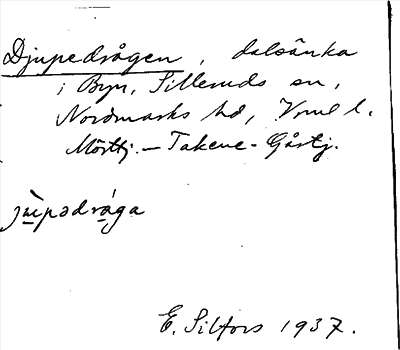 Djupedrågen, dalsänka
i Byn, Silleruds sn,
Nordmarks hd, Vrml l.
Mörttj. – Takene - Gårtj.
jùpədrága
E. Silfors 1937.